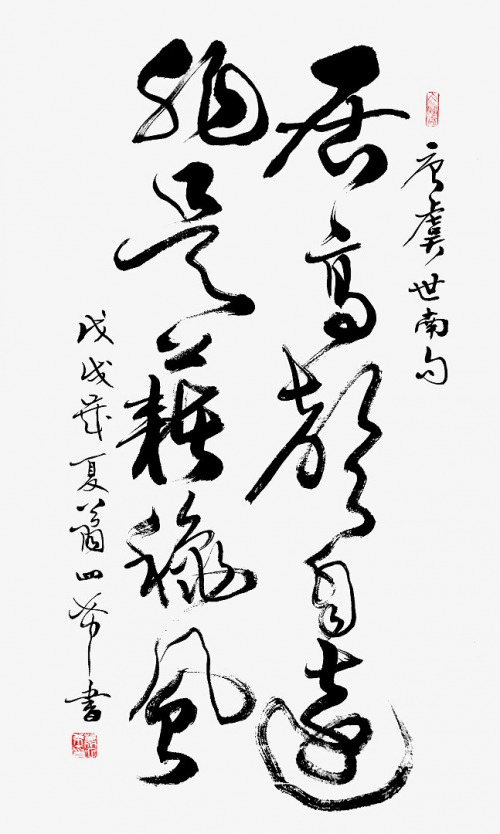 唐虞世南句
居高聲自遠
非是藉秋風
戊戌歲夏四書